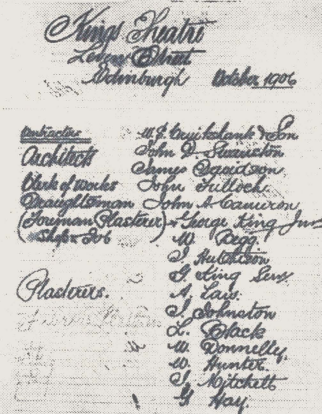 Kings Theatre
Leven Street
Edinburgh October, 1906
Contractors W. S. Cruikshank & Son
Architects John D. Swanston
James Davidson
Clerk of Works John Tulloch
Draughtsman John A. Cameron
(Foreman Plasterer) George King Junr
Shop & Job
W. Begg.
J. Hutchison
G King Senr
Plasterers. A. Law.
J. Johnston
L. Black
W. Donnelly.
W. Hunter
J. Mitchell
G. Hay